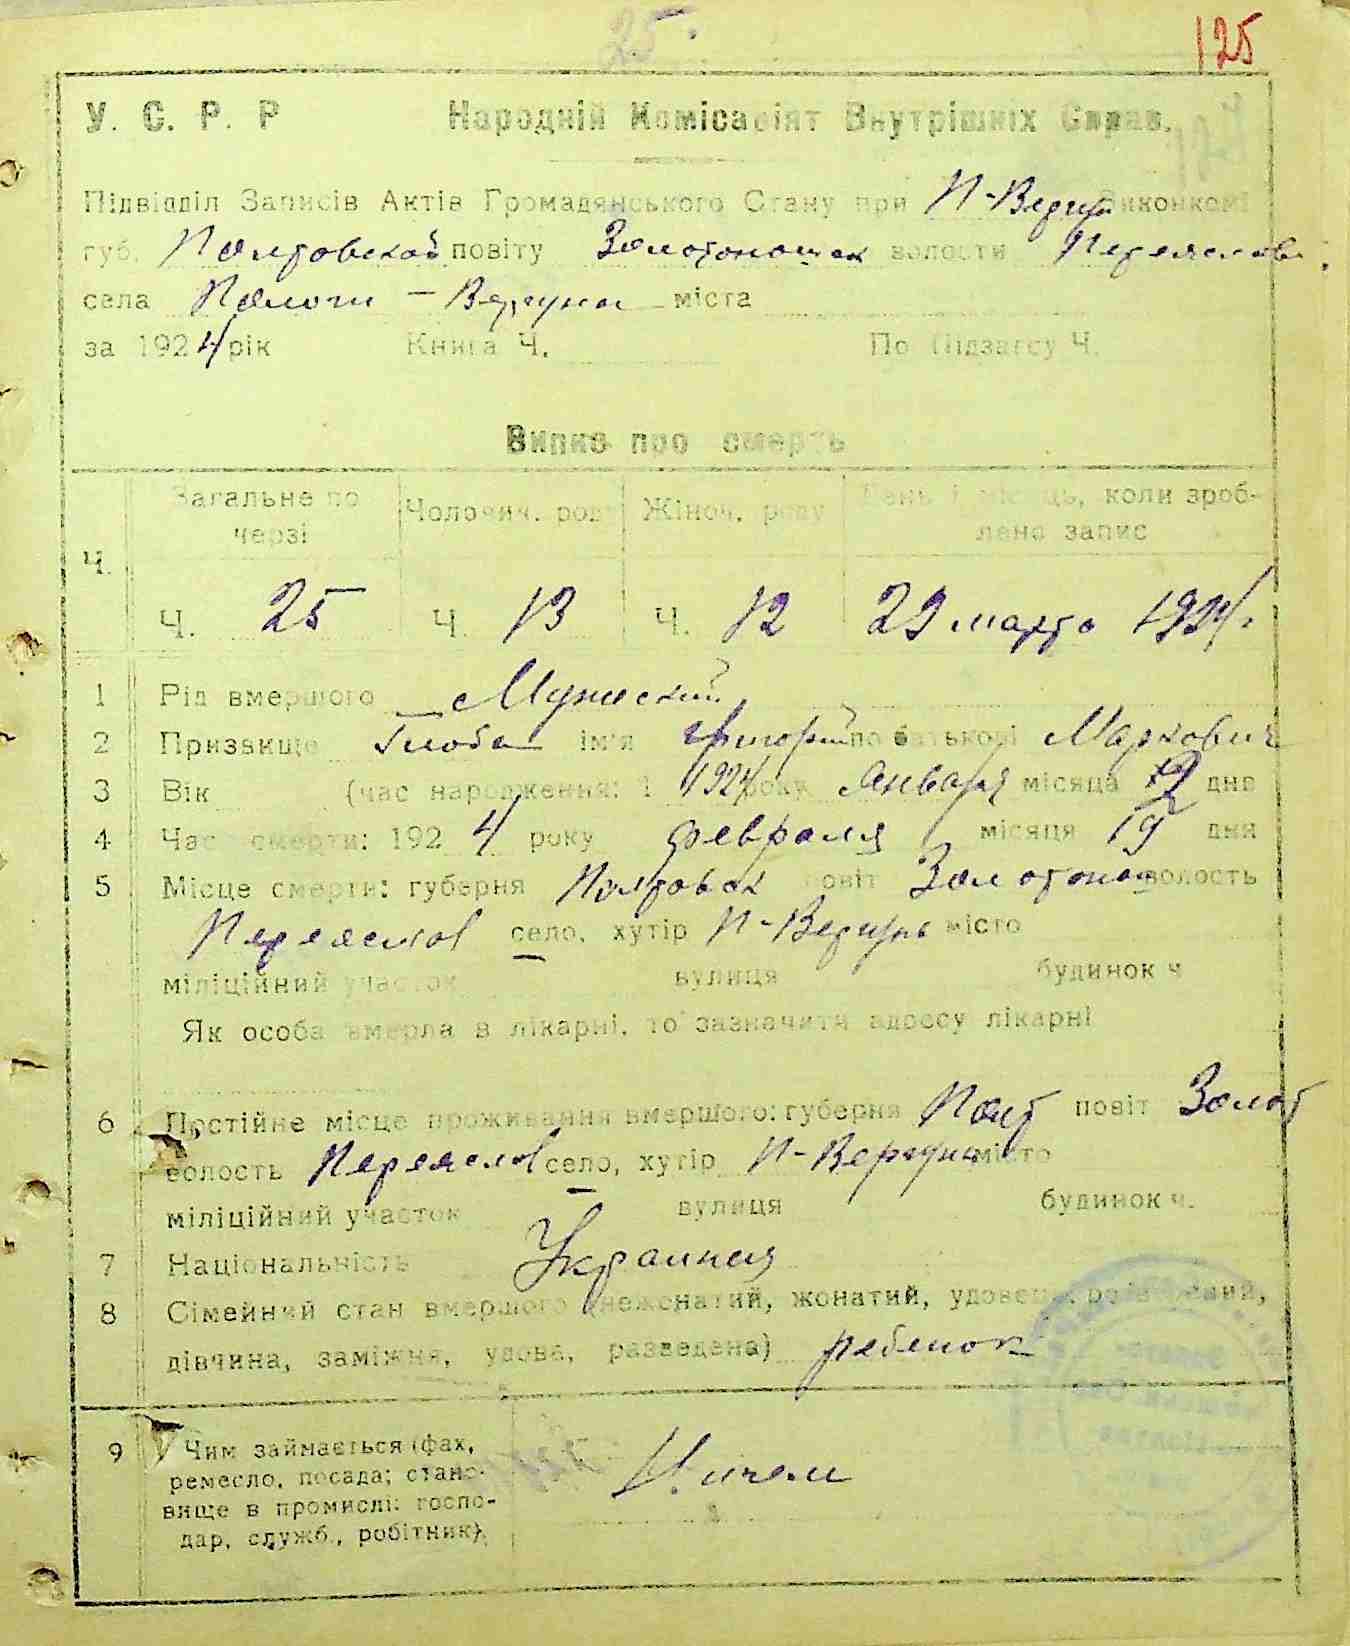 25.
125
У. С. Р. Р Народній Комісаріят Внутрішніх Справ.
Підвідділ Записів Актів Громадянського Стану при П-Вергун Виконкомі
губ. Полтовской повіту Золотоношск волости Переяслов
села Пологи - Вергуны міста
за 1924 рік Книга Ч. По Підзагсу Ч.
Випис про смерть
Ч. Загальне по черзі Чолович. роду Жіноч. роду День і місяць, коли зроблено запис
Ч. 25 Ч. 13 Ч. 12 29 марта 1924 г.
1 Рід вмершого Мужеский
2 Призвище Глоба ім'я Григорий по батькові Маркович
3 Вік (час народження: 1 1924 року Января місяца 12 дня
4 Час смерти: 1924 року февраля місяця 19 дня
5 Місце смерти: губерня Полтовск повіт Золотонош волость
Переяслов село, хутір П-Вергуны місто
міліційний участок вулиця будинок ч
Як особа вмерла в лікарні, то зазначити адресу лікарні
6 Постійне місце проживання вмершого: губерня Полт повіт Золот
волость Переяслов село, хутір П-Вергуны місто
міліційний участок вулиця будинок ч.
7 Національність Украинец
8 Сімейний стан вмершого (нежонатий, жонатий, удовець, розведений,
дівчина, заміжня, удова, разведена) ребенок
9 Чим займається (фах,
ремесло, посада; стано-
вище в промислі: госпо-
дар, служб., робітник)
Ничем